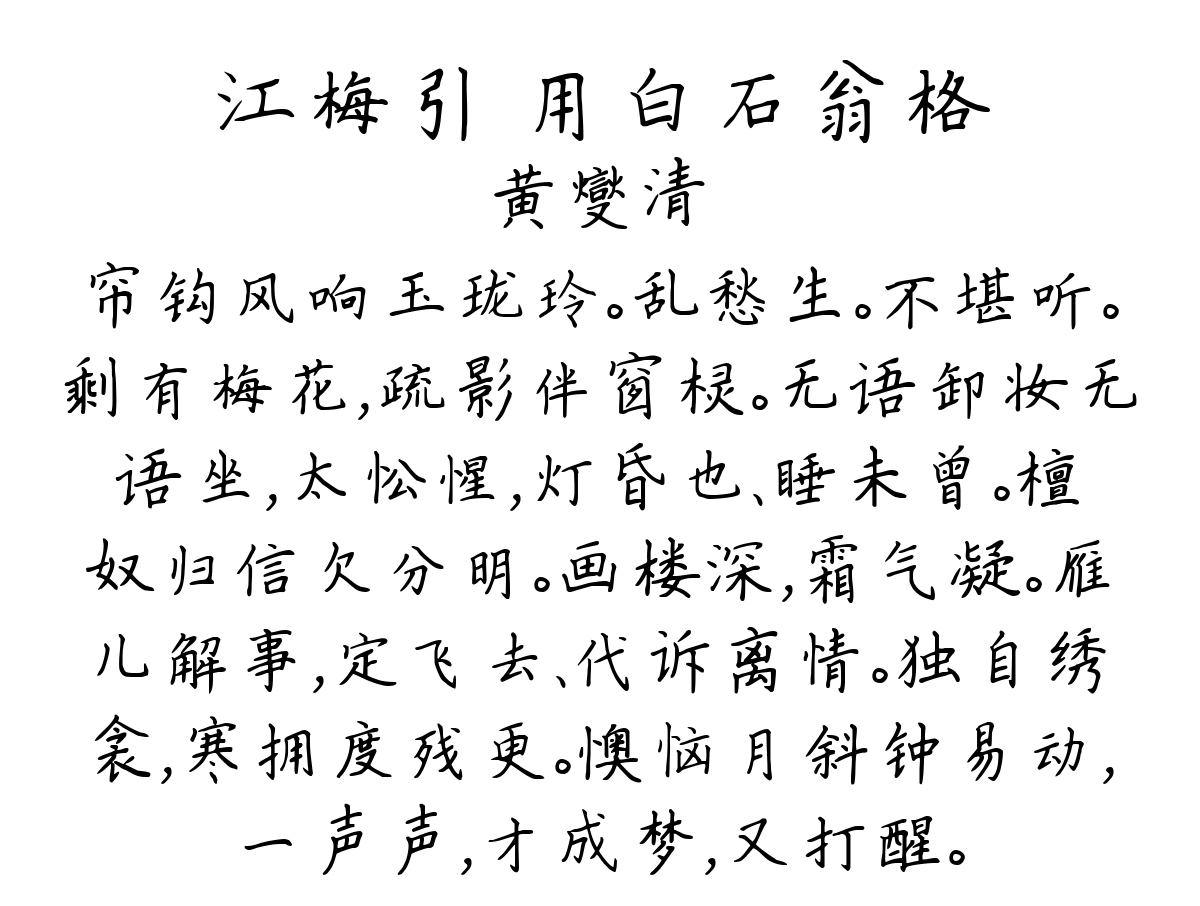 江梅引 用白石翁格
黄燮清
帘钩风响玉珑玲。乱愁生。不堪听。
剩有梅花,疏影伴窗棂。无语卸妆无
语坐,太忪惺,灯昏也、睡未曾。檀
奴归信欠分明。画楼深,霜气凝。雁
儿解事,定飞去、代诉离情。独自绣
衾,寒拥度残更。懊恼月斜钟易动,
一声声,才成梦,又打醒。